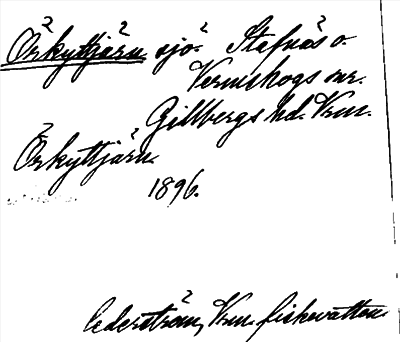 Örkyttjärn sjö. Stafnäs o.
Vermskogs snr.
Gillbergs hd. Vrm.
Örkyttjärn.
1896.
Cederström, Vrm. fiskevatten